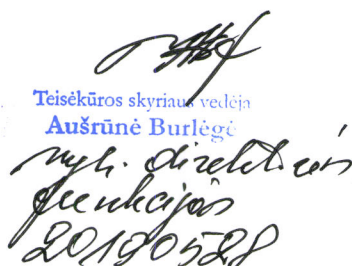 Teisėkūros skyriaus vedėja
Aušrūnė Burlėgė
vyk. direktorės
funkcijas
20190528